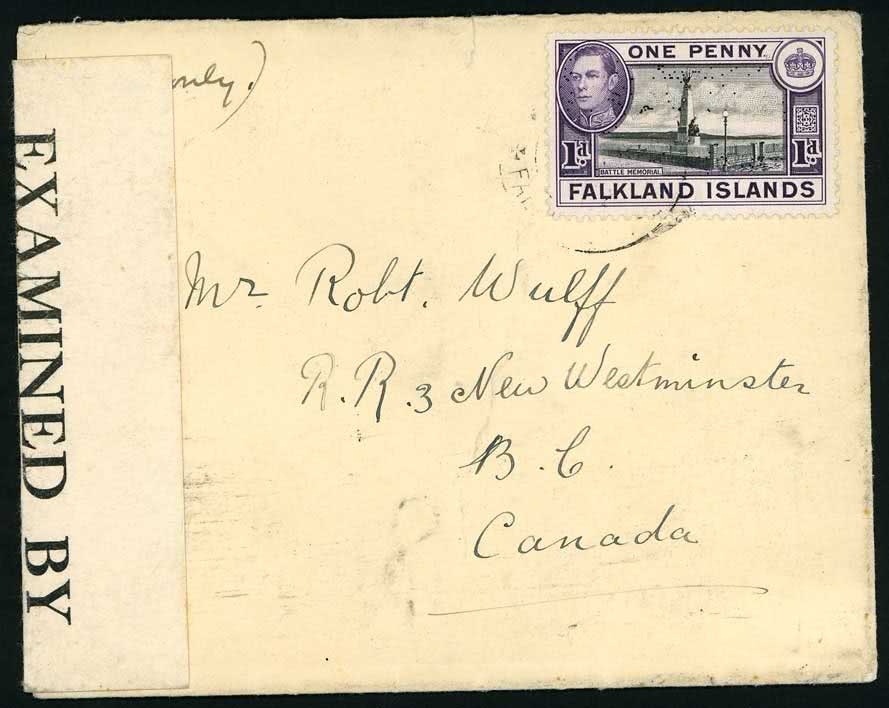 only.)
EXAMINED BY
ONE PENNY
1d 1d
BATTLE MEMORIAL
FALKLAND ISLANDS
Mr. Robt. Wulff
R.R.3 New Westminster
B.C.
Canada